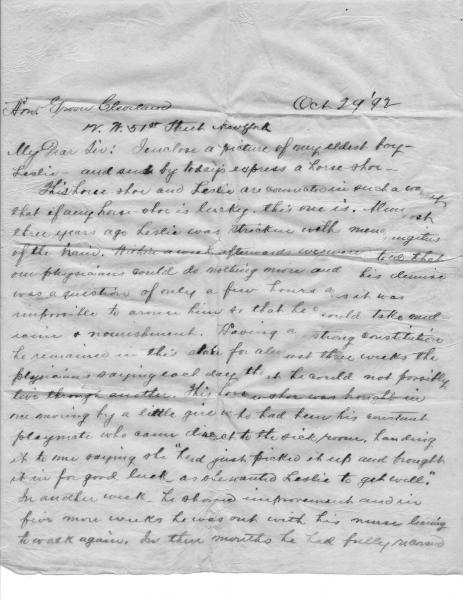 Hon. Grover Cleveland Oct 29 '92
W. 51st Street New York
My Dear Sir: I enclose a picture of my eldest boy—
Leslie — and send by today's express a horse-shoe—
This horse shoe and Leslie are connected in such a way
that if any horse-shoe is lucky, this one is. Almost
three years ago Leslie was stricken with meningitus
of the brain. Within a week afterwards we were told that
our physicians could do nothing more and his demise
was a question of only a few hours as it was
impossible to arouse him so that he could take med-
icine & nourishment. Having a strong constitution
he remained in this state for almost three weeks the
physicians saying each day that he could not possibly
live through another. This horse shoe was brought in
one morning by a little girl who had been his constant
playmate who came direct to the sick room, handing
it to me saying she "had just picked it up and brought
it in for good luck as she wanted Leslie to get well."
In another week he showed improvement and in
five more weeks he was out with his nurse learning
to walk again. In three months he had fully recovered